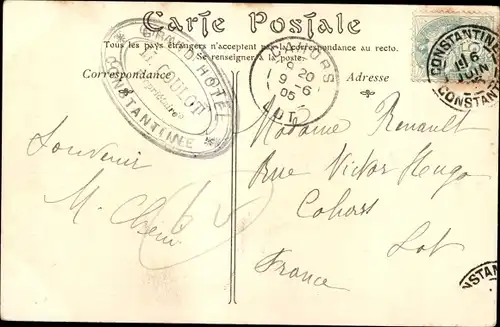 Carte Postale
Tous les pays étrangers n'acceptent pas la correspondance au recto.
Se renseigner à la poste.
Correspondance
Adresse
GRAND HÔTEL
L. COULOT
propriétaire
CONSTANTINE
CAHORS
9 20
9 -6
05
LOT
CONSTANTINE
6
JUIN
CONSTANTINE
Souvenir
M.
Madame Renault
Rue Victor Hugo
Cahors
Lot
France
CONSTANTINE